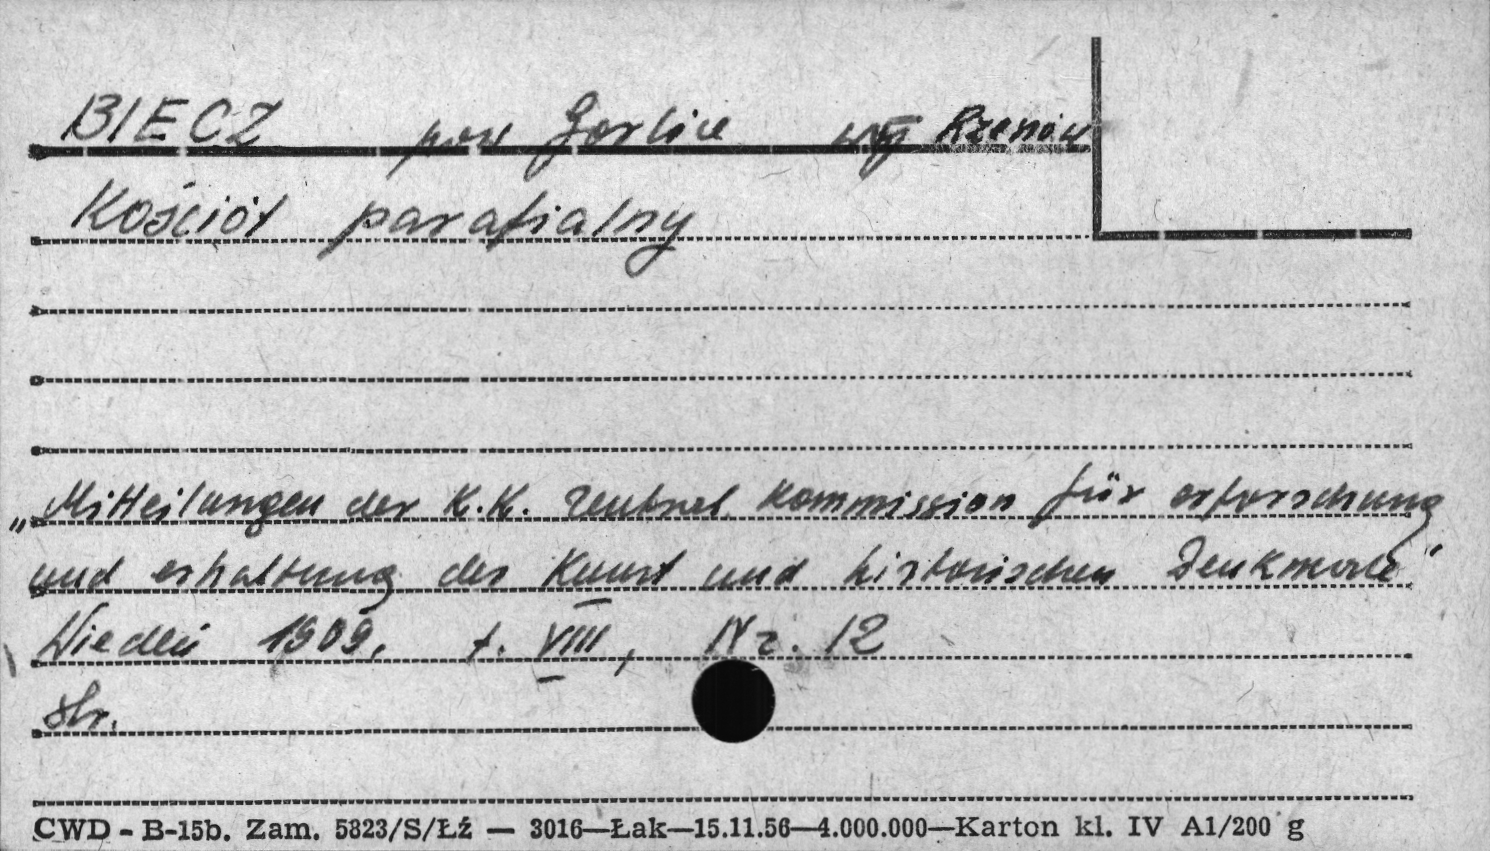 BIECZ pow Gorlice woj Rzeszów
Kościół parafialny
„Mitteilungen der K.K. Zentral Kommission für erforschung
und erhaltung der Kunst und historischen Denkmale"
Wiedeń 1909, t. VIII, Nr. 12
str.
CWD - B-15b. Zam. 5823/S/Łź — 3016—Łak—15.11.56—4.000.000—Karton kl. IV A1/200 g